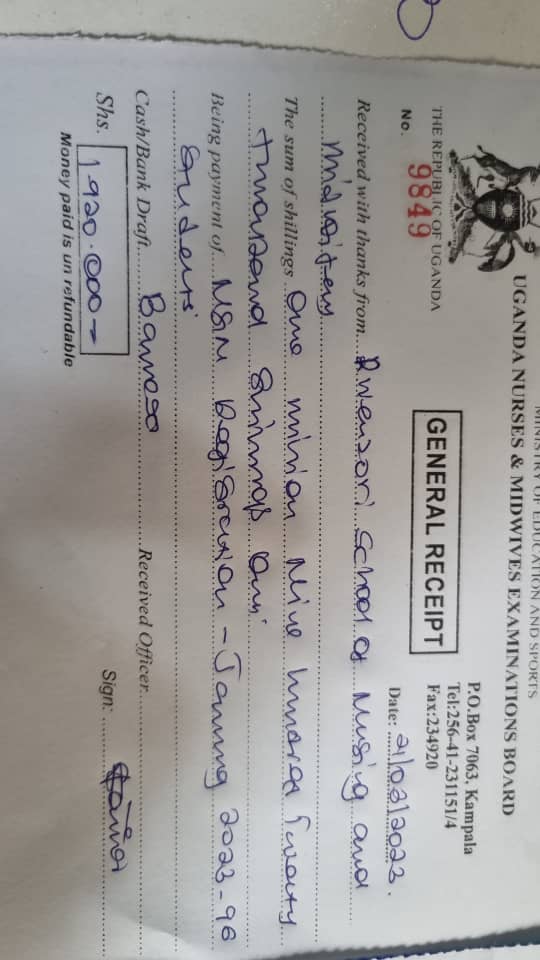 MINISTRY OF EDUCATION AND SPORTS
UGANDA NURSES & MIDWIVES EXAMINATIONS BOARD
THE REPUBLIC OF UGANDA
P.O.Box 7063, Kampala
Tel:256-41-231151/4
Fax:234920
GENERAL RECEIPT
No. 9849
Date: 21/02/2023.
Received with thanks from Rwenzori School of Nursing and
Midwifery
The sum of shillings One million Nine hundred Twenty
thousand Shillings Only
Being payment of NSIN Registration - January 2023 - 96
Students
Cash/Bank Draft Received Officer
Shs. 1,920,000 =
Sign:
Money paid is un refundable